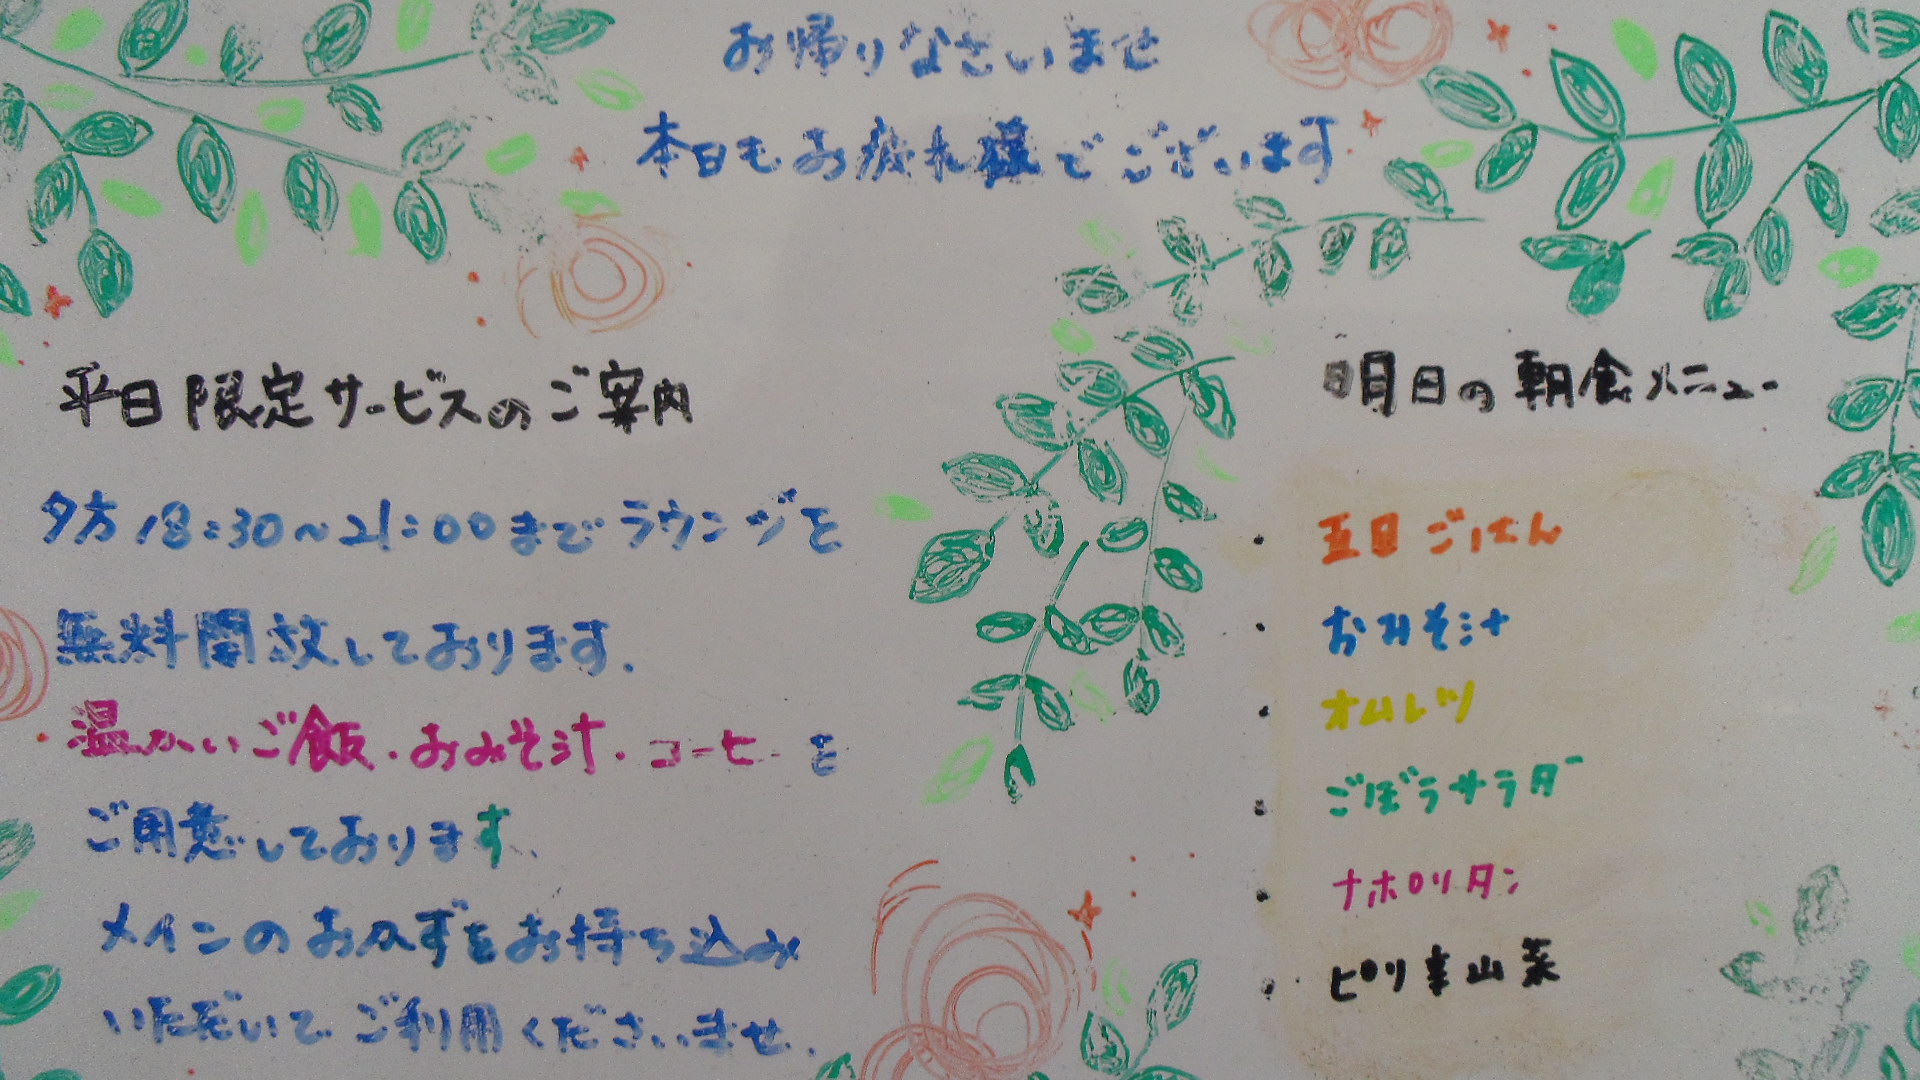 お帰りなさいませ
本日もお疲れ様でございます
平日限定サービスのご案内
夕方18:30~21:00までラウンジを
無料開放しております.
温かいご飯・おみそ汁・コーヒーを
ご用意しております.
メインのおかずをお持ち込み
いただいてご利用くださいませ.
明日の朝食メニュー
・五目ごはん
・おみそ汁
・オムレツ
・ごぼうサラダ
・ナポリタン
・ピリ辛山菜